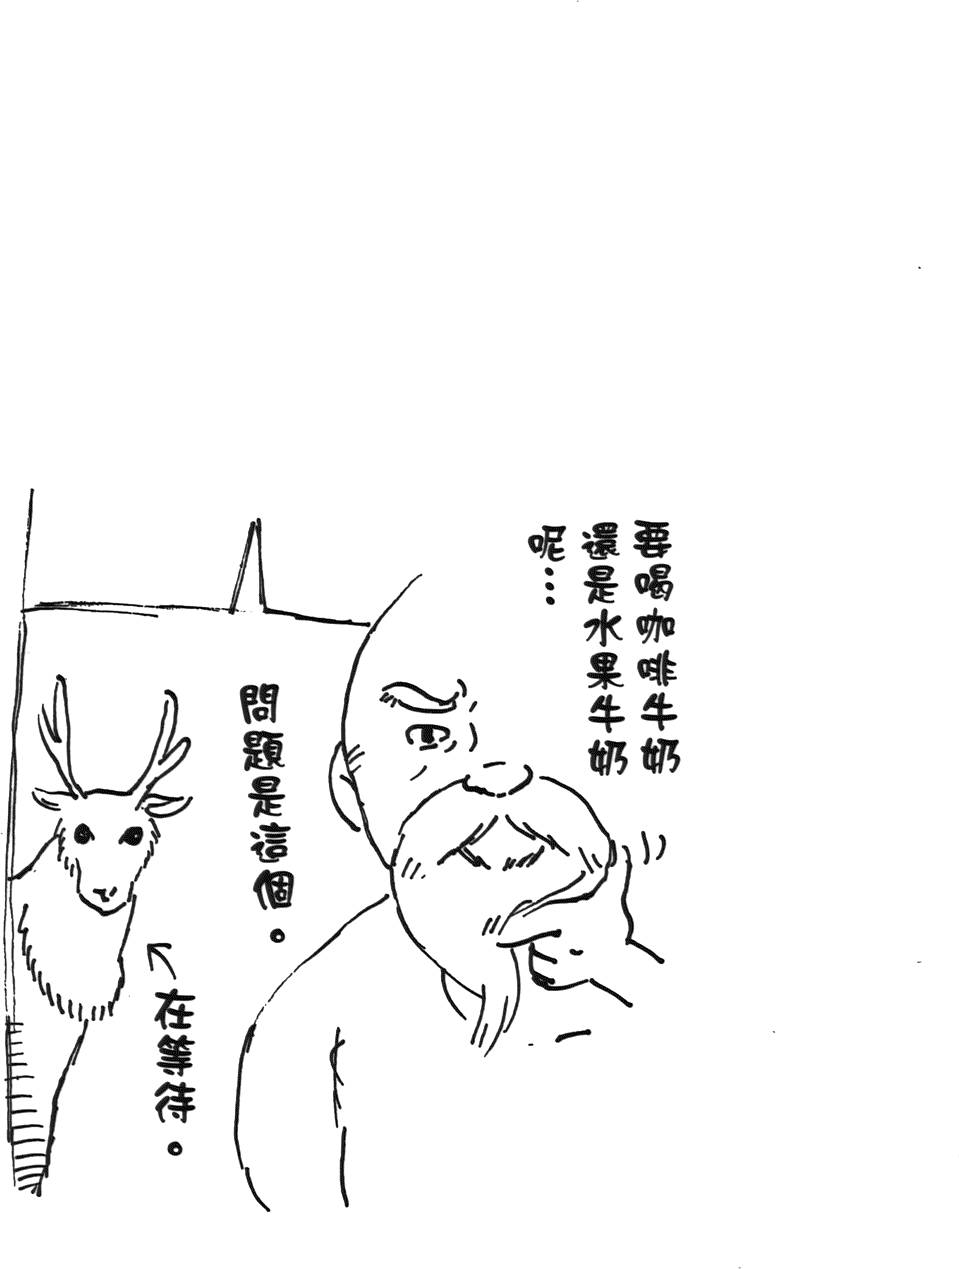 要喝咖啡牛奶
還是水果牛奶
呢…
問題是這個。
在等待。